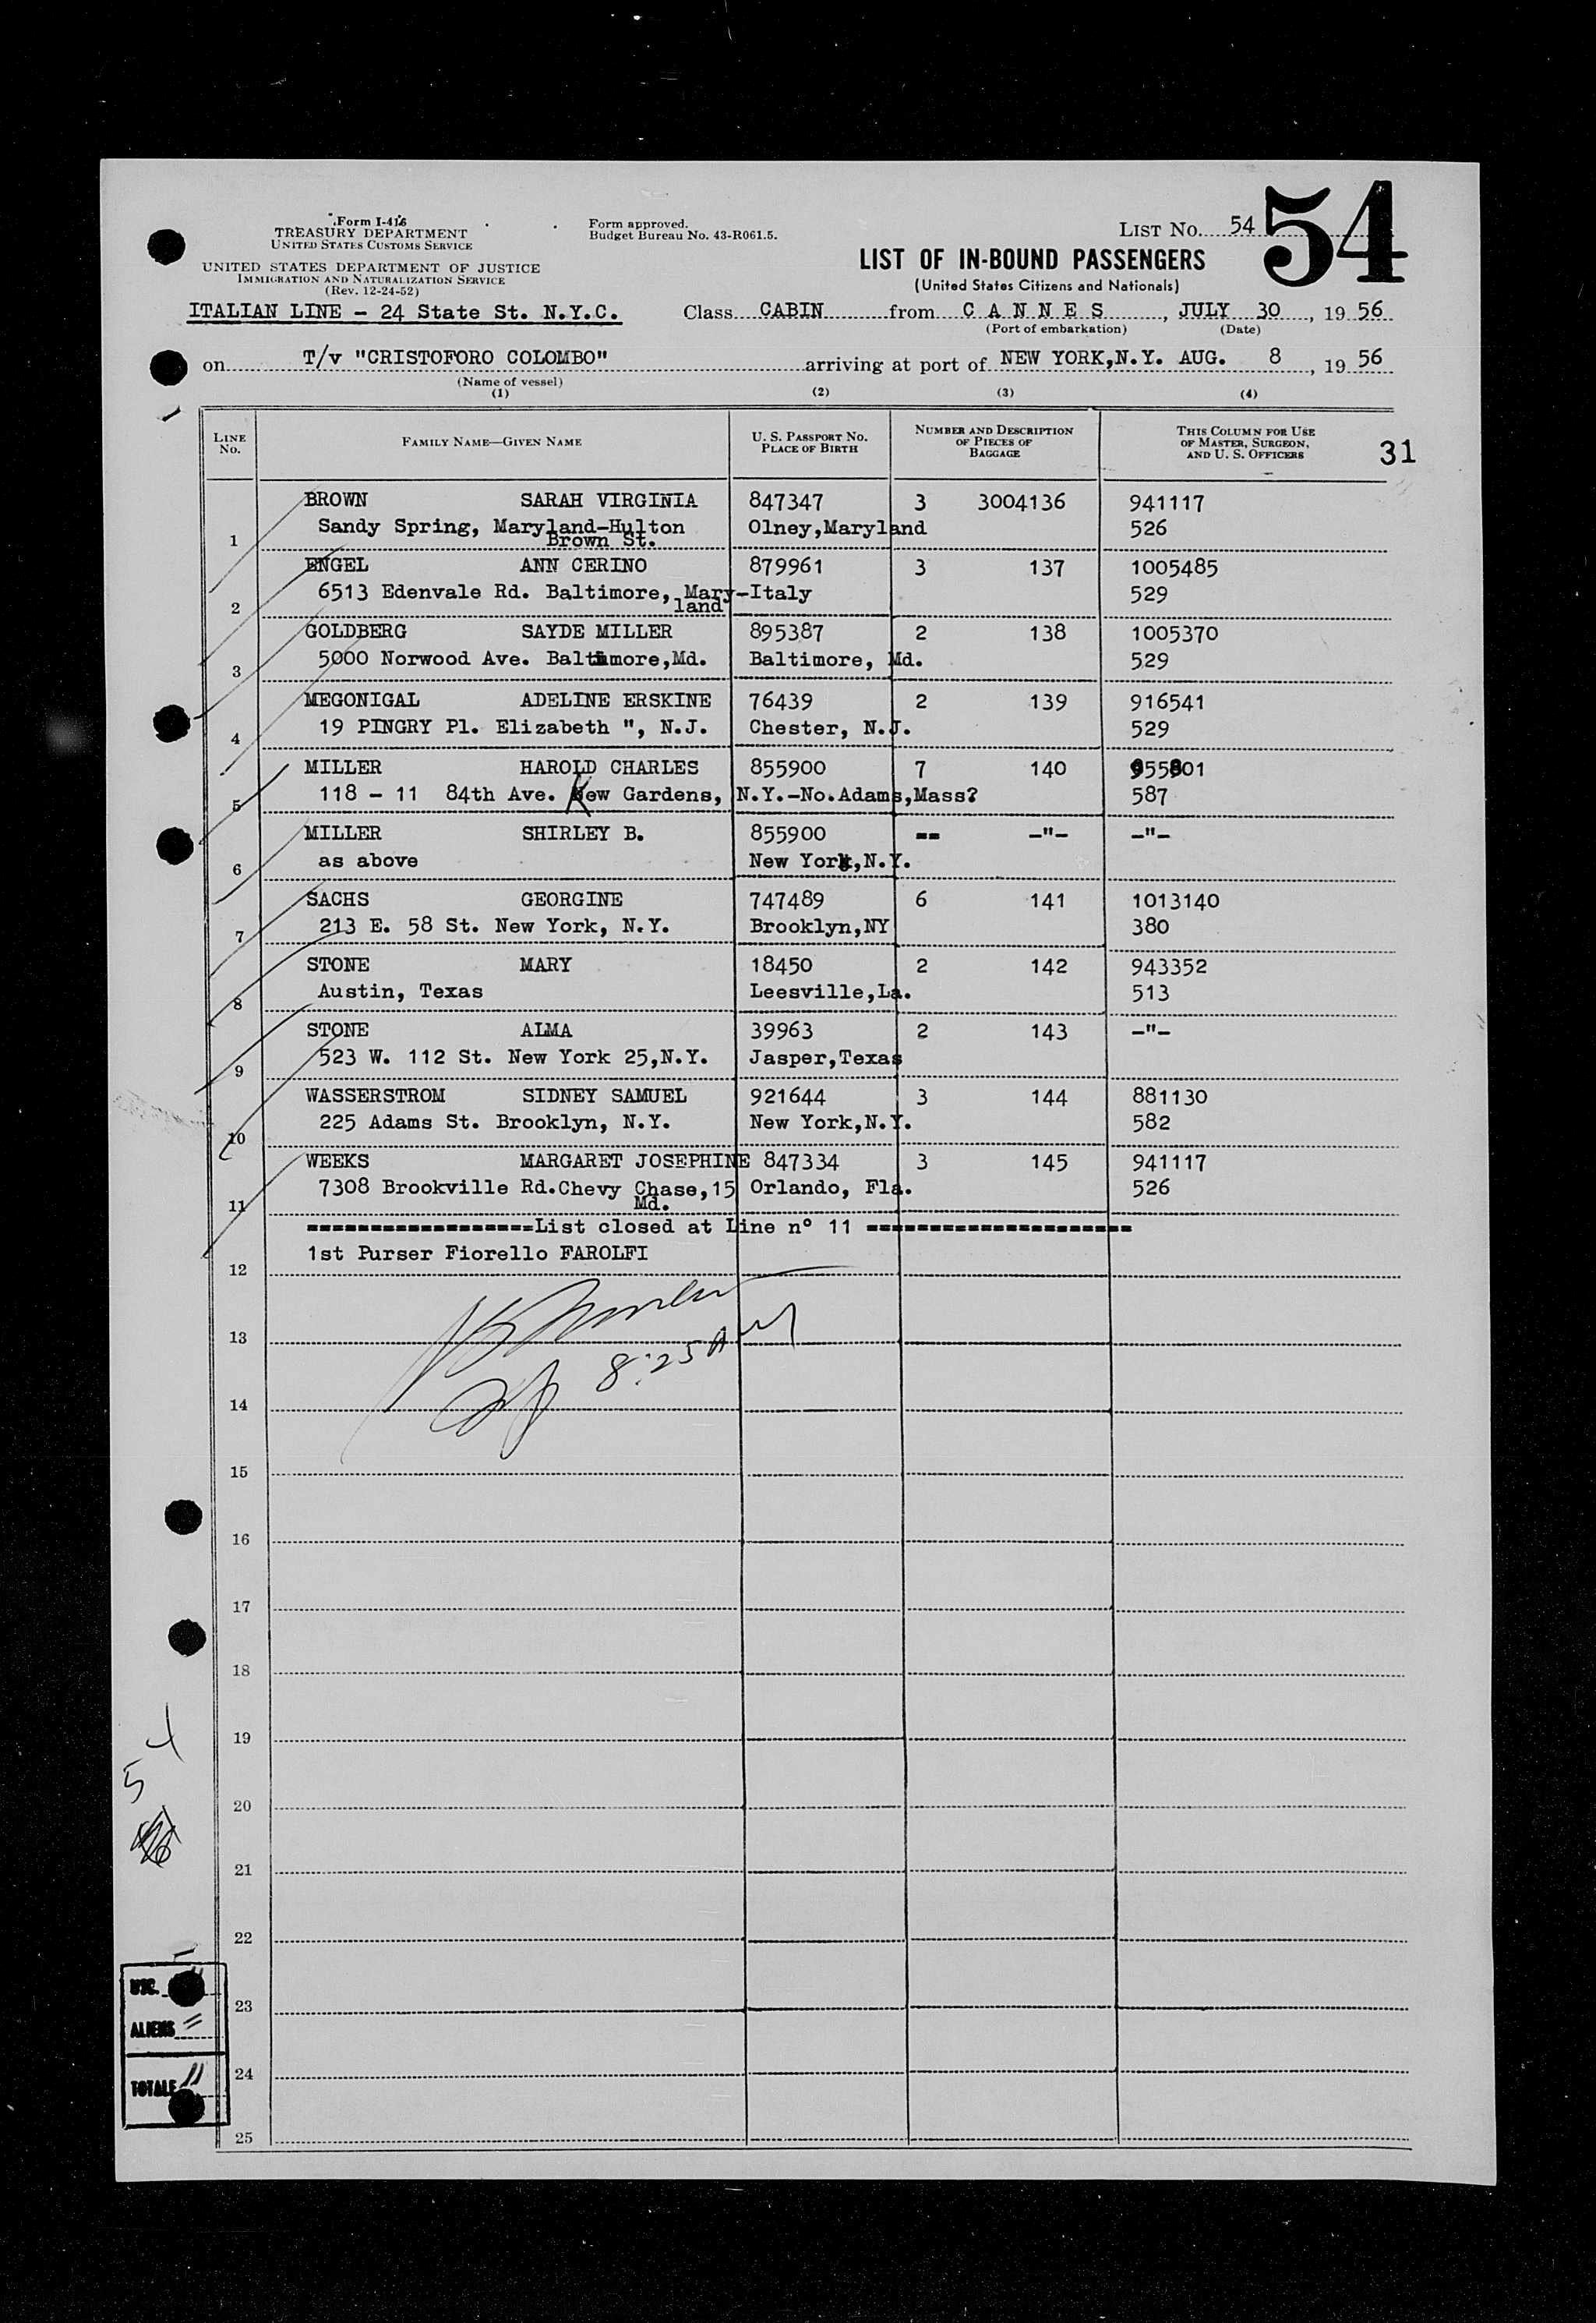 Form I-416
TREASURY DEPARTMENT
UNITED STATES CUSTOMS SERVICE
UNITED STATES DEPARTMENT OF JUSTICE
IMMIGRATION AND NATURALIZATION SERVICE
(Rev. 12-24-52)
Form approved.
Budget Bureau No. 43-R061.5.
LIST NO. 54
54
LIST OF IN-BOUND PASSENGERS
(United States Citizens and Nationals)
ITALIAN LINE - 24 State St. N.Y.C. Class CABIN from C A N N E S, JULY 30, 19 56
(Port of embarkation) (Date)
on T/v "CRISTOFORO COLOMBO" arriving at port of NEW YORK,N.Y. AUG. 8, 19 56
(Name of vessel)
(1) (2) (3) (4)
LINE No. FAMILY NAME—GIVEN NAME U. S. PASSPORT NO. PLACE OF BIRTH NUMBER AND DESCRIPTION OF PIECES OF BAGGAGE THIS COLUMN FOR USE OF MASTER, SURGEON, AND U. S. OFFICERS 31
BROWN SARAH VIRGINIA 847347 3 3004136 941117
1 Sandy Spring, Maryland-Hulton Brown St. Olney,Maryland 526
ENGEL ANN CERINO 879961 3 137 1005485
2 6513 Edenvale Rd. Baltimore, Mary-land Italy 529
GOLDBERG SAYDE MILLER 895387 2 138 1005370
3 5000 Norwood Ave. Baltimore,Md. Baltimore, Md. 529
MEGONIGAL ADELINE ERSKINE 76439 2 139 916541
4 19 PINGRY Pl. Elizabeth ", N.J. Chester, N.J. 529
MILLER HAROLD CHARLES 855900 7 140 955801
5 118 - 11 84th Ave. Kew Gardens, N.Y.-No.Adams,Mass? 587
MILLER SHIRLEY B. 855900 == -"- -"-
6 as above New York,N.Y.
SACHS GEORGINE 747489 6 141 1013140
7 213 E. 58 St. New York, N.Y. Brooklyn,NY 380
STONE MARY 18450 2 142 943352
8 Austin, Texas Leesville,La. 513
STONE ALMA 39963 2 143 -"-
9 523 W. 112 St. New York 25,N.Y. Jasper,Texas
WASSERSTROM SIDNEY SAMUEL 921644 3 144 881130
10 225 Adams St. Brooklyn, N.Y. New York,N.Y. 582
WEEKS MARGARET JOSEPHINE 847334 3 145 941117
11 7308 Brookville Rd.Chevy Chase,15 Md. Orlando, Fla. 526
==================List closed at Line n° 11 =====================
1st Purser Fiorello FAROLFI
12
13
8:25 A
14
15
16
17
18
19
54
20
21
22
USC.
23
ALIENS
24
TOTALE 11
25